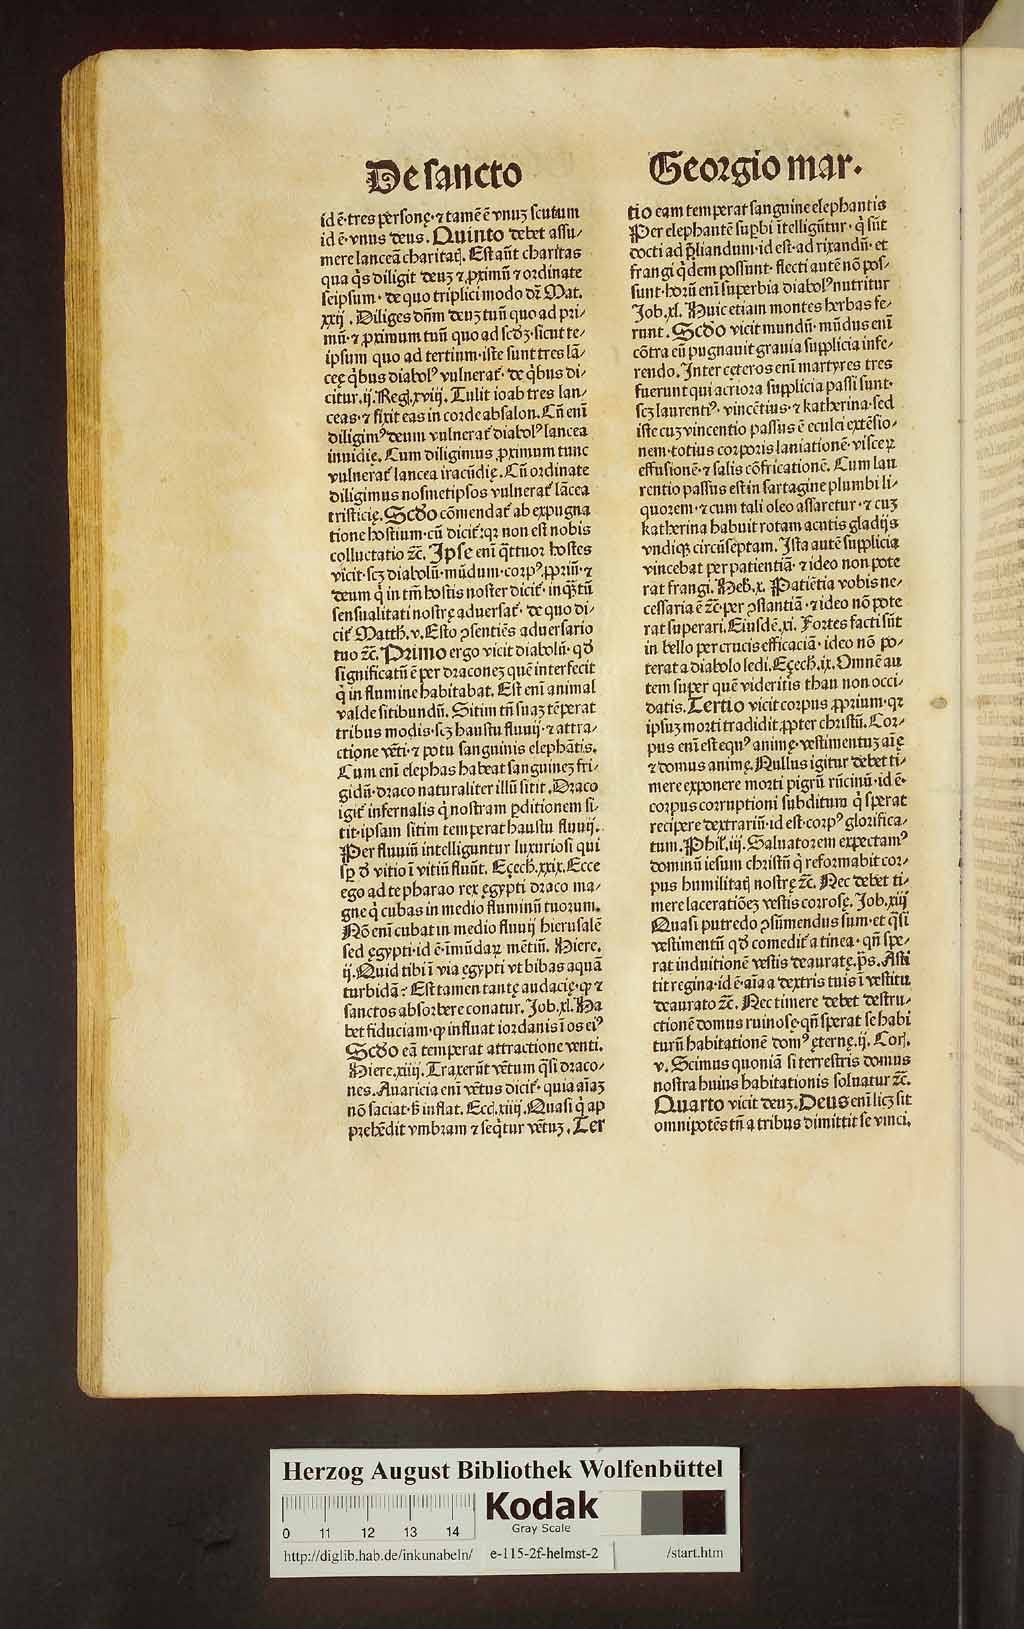 De sancto
id ē·tres personę·⁊ tamē ē vnuʒ scutum
id ē·vnus deus. Quinto debet assu-
mere lanceā charitatꝭ. Est aūt charitas
qua q̇s diligit deuʒ ⁊ ꝓximū ⁊ ordinate
seipsum·de quo triplici modo dr̄ Mat.
xxij. Diliges dn̄m deuʒ tuū quo ad pri-
mū·⁊ ꝓximum tuū quo ad scd̄ʒ·sicut te-
ipsum quo ad tertium·iste sunt tres lā-
ceę q̇bus diabolꝰ vulnerat᷑·de q̇bus di-
citur.ij.Regꝭ.xviij. Tulit ioab tres lan-
ceas·⁊ fixit eas in corde absalon. Cū eni̅
diligimꝰ deum vulnerat᷑ diabolꝰ lancea
inuidię. Cum diligimus ꝓximum tunc
vulnerat᷑ lancea iracūdię. Cū ordinate
diligimus nosmetipsos vulnerat᷑ lācea
tristicię. Scd̄o cōmendat᷑ ab expugna
tione hostium·cū dicit᷑:qꝛ non est nobis
colluctatio ⁊c̄. Ipse eni̅ q̄ttuor hostes
vicit·scʒ diabolū·mūdum·corpꝰ ꝓpriū·⁊
deum q̇ in tm̄ hostis noster dicit᷑·inq̄ʒtū
sensualitati nostrę aduersat᷑·de quo di-
cit᷑ Matth.v. Esto ꝯsentiēs aduersario
tuo ⁊c̄. Primo ergo vicit diabolū·qd̄
significatū ē per draconeʒ quē interfecit
q̇ in flumine habitabat. Est eni̅ animal
valde sitibundū. Sitim tn̄ suaʒ tēperat
tribus modis·scʒ haustu fluuij·⁊ attra-
ctione vēti·⁊ potu sanguinis elephātis.
Cum eni̅ elephas habeat sanguineʒ fri-
gidū·draco naturaliter illū sitit. Draco
igit᷑ infernalis q̇ nostram ꝑditionem si-
tit·ipsam sitim temperat haustu fluuij.
Per fluuiū intelliguntur luxuriosi qui
sꝑ d̄ vitio i̅ vitiū fluūt. Eęech.xxix. Ecce
ego ad te pharao rex ęgypti draco ma-
gne q̇ cubas in medio fluminū tuorum.
Nō eni̅ cubat in medio fluuij hierusalē
sed ęgypti·id ē·īmūdaꝝ mētiū. Hiere.
ij. Quid tibi i̅ via ęgypti vt bibas aquā
turbidā? Est tamen tantę audacię·ꝙ ⁊
sanctos absorbere conatur. Job.xl. Ha
bet fiduciam·ꝙ influat iordanis i̅ os eiꝰ
Scd̄o eā temperat attractione venti.
Hiere.xiiij. Traxerūt vētum q̄si draco-
nes. Auaricia eni̅ vētus dicit᷑·quia aīaʒ
nō saciat·sʒ inflat. Eccꝭ.xiiij. Quasi q̇ ap
prehēdit vmbram ⁊ seq̇tur vētuʒ. Ter
Georgio mar.
tio eam temperat sanguine elephantis
Per elephantē supbi i̅telligūtur·q̇ sūt
docti ad p̄liandum·id est·ad rixandū·et
frangi q̇dem possunt·flecti autē nō pos-
sunt·horū eni̅ superbia diabolꝰ nutritur
Job.xl. Huic etiam montes herbas fe-
runt. Scd̄o vicit mundū·mūdus eni̅
cōtra eū pugnauit grauia supplicia infe-
rendo. Inter cęteros eni̅ martyres tres
fuerunt qui acriora supplicia passi sunt·
scʒ laurentiꝰ·vincētius·⁊ katherina·sed
iste cuʒ vincentio passus ē eculei extēsio-
nem·totius corporis laniationē·visceꝝ
effusionē·⁊ salis cōfricationē. Cum lau
rentio passus est in sartagine plumbi li-
quorem·⁊ cum tali oleo assaretur·⁊ cuʒ
katherina habuit rotam acutis gladijs
vndiqꝫ circūseptam. Ista autē supplicia
vincebat per patientiā·⁊ ideo non pote
rat frangi. Heb̄.x. Patiētia vobis ne-
cessaria ē ⁊c̄·per ꝯstantiā·⁊ ideo nō pote
rat superari. Eiusdē.xi. Fortes facti sūt
in bello per crucis efficaciā·ideo nō po-
terat a diabolo ledi. Eęech.ix. Omnē au
tem super quē videritis thau non occi-
datis. Tertio vicit corpus ꝓprium·qꝛ
ipsuʒ morti tradidit ꝓpter christū. Cor-
pus eni̅ est equꝰ animę·vestimentuʒ aīę
⁊ domus animę. Nullus igitur debet ti-
mere exponere morti pigrū rūcinū·id ē·
corpus corruptioni subditum q̇ sperat
recipere dextrariū·id est·corpꝰ glorifica-
tum. Phil̄.iij. Saluatorem expectamꝰ
dominū iesum christū q̇ reformabit cor-
pus humilitatꝭ nostrę ⁊c̄. Nec debet ti-
mere laceratiōeʒ vestis corrosę. Job.xiij
Quasi putredo ꝯsūmendus sum·et q̄si
vestimentū qd̄ comedit᷑ a tinea·qn̄ spe-
rat induitionē vestis deauratę. p̄s. Asti
tit regina·id ē·aīa a dextris tuis i̅ vestitu
deaurato ⁊c̄. Nec timere debet destru-
ctionē domus ruinosę·qn̄ sperat se habi
turū habitationē domꝰ ęternę.ij. Corꝭ.
v. Scimus quoniā si terrestris domus
nostra huius habitationis soluatur ⁊c̄.
Quarto vicit deuʒ. Deus eni̅ licʒ sit
omnipotēs tn̄ a tribus dimittit se vinci.
Herzog August Bibliothek Wolfenbüttel
0 11 12 13 14
Kodak
Gray Scale
http://diglib.hab.de/inkunabeln/ e-115-2f-helmst-2 /start.htm